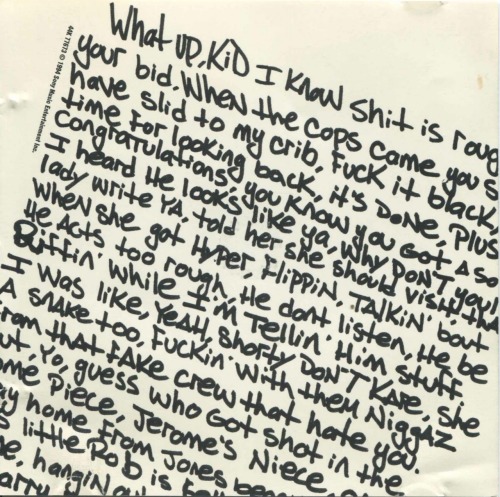 44K 77673 © 1994 Sony Music Entertainment Inc.
What UP, KiD I KNOW Shit is roug
your bid. WHEN the COPS CAME you S
have slid to my crib, Fuck it black,
time For looking back, it's DONE, Plus
Congratulations, you KNOW you Got A So
I heard He looks like ya, Why DON'T you
lady write YA, told her she should visit, tha
When she got HyPer, FlippiN, TAlkiN' 'bout
He Acts too rough, He dont listen, He be
Riffin' While I'm Tellin' Him stuff.
I was like, YEAH, Shorty DON'T KARE, She
A SNAKE too, FuckiN' With them Niggaz
From that FAKE crew that hate you.
ut, Yo, guess who Got shot in the
ome Piece, Jerome's Niece
y home From Jones
little Rob is
e, hangin